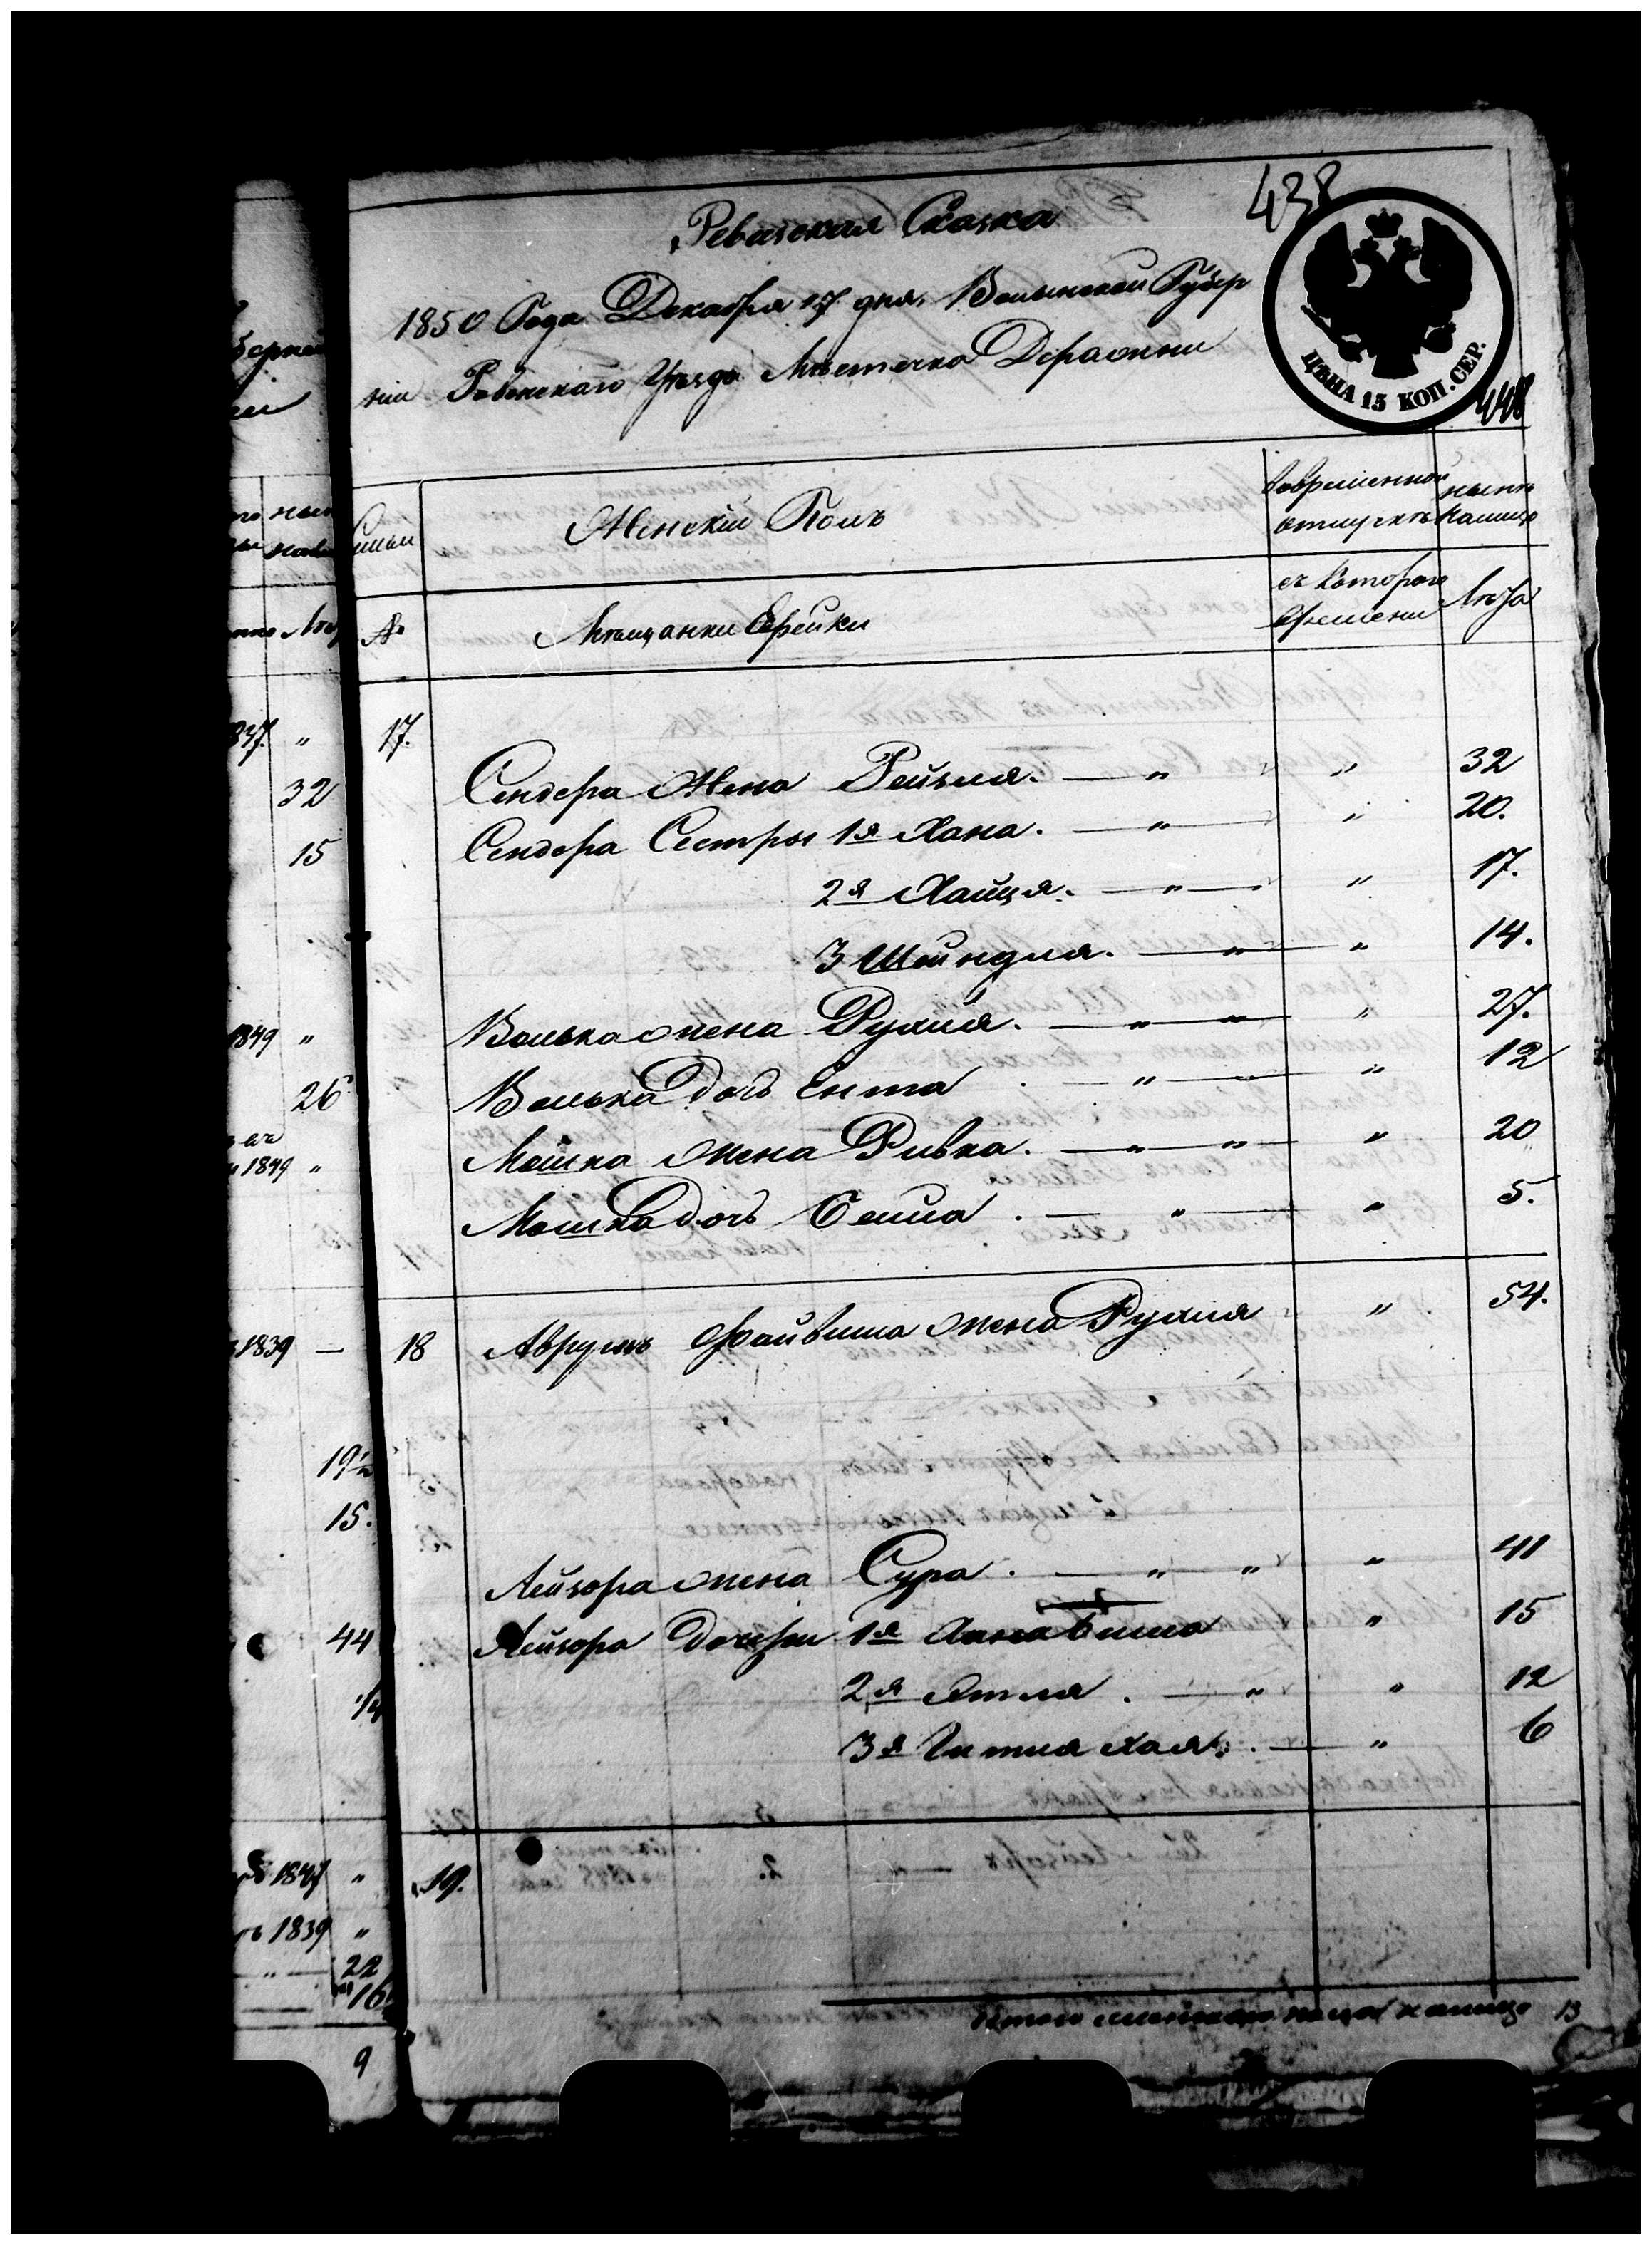 438
Ревизская Сказка
1850 Года Декабря 17 дня. Волынской Губер
нии Ровенскаго Уезда Местечка Деражни
ЦѢНА 15 КОП. СЕР.
448
Семьи
Женскій Полъ
Вовременной отлучкѣ
нынѣ налицо
№
Мѣщанки Еврейки
съ котораго времени
Лѣта
17.
Сендера Жена Рейзля. — " " 32
Сендера Сестры 1я Хана. — " — " 20.
2я Хайця. — " — " 17.
3 Шейндля. — " — " 14.
Волька жена Рухля. — " " — " 27.
Волька дочь Ента . — " — " 12
Мошка жена Ривка. — " " — " 20
Мошка дочь . — " — " 5.
18 Аврумъ Файвиша жена Рухля " 54.
Лейзора жена Сура . — " " " 41
Лейзора дочери 1я " 15
2я Этля . — " " 12
3я Гитля Хая . — " 6
19.
Итого женскаго пола налицо 13
837. "
32
15
1849 "
26
1849 "
1839 —
19 1/2
15.
44
1/4
1847 "
1839 "
" — 22
16
9